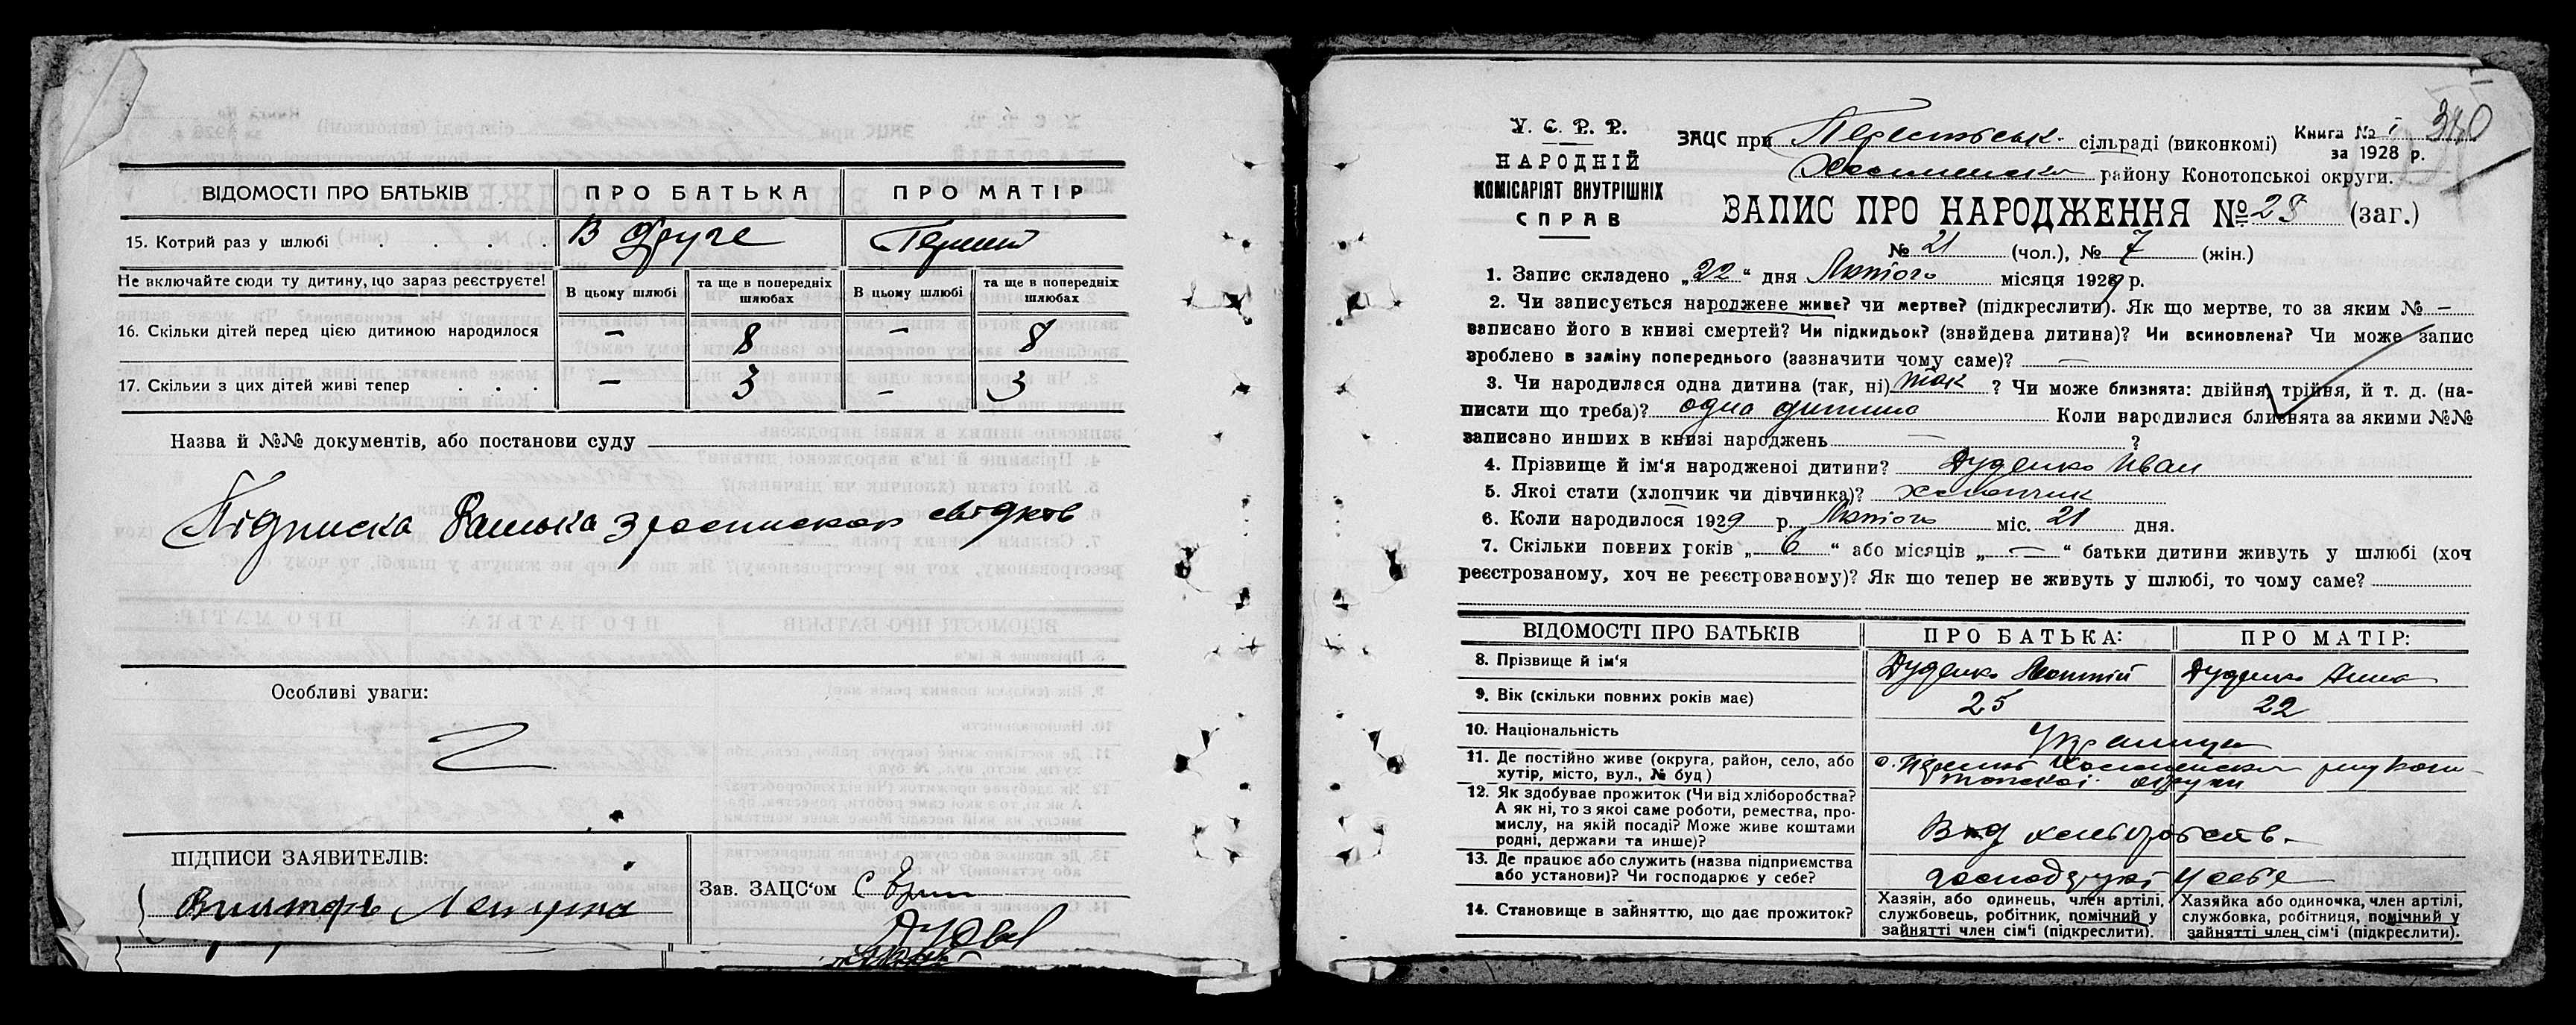 ВІДОМОСТІ ПРО БАТЬКІВ ПРО БАТЬКА ПРО МАТІР
15. Котрий раз у шлюбі . . . . В Друге
Не включайте сюди ту дитину, що зараз реєструєте! В цьому шлюбі та ще в попередніх шлюбах В цьому шлюбі та ще в попередніх шлюбах
16. Скільки дітей перед цією дитиною народилося – 8 – 8
17. Скільки з цих дітей живі тепер . . . – 3 – 3
Назва й №№ документів, або постанови суду
Підписка Батька з росписком свідків
Особливі уваги:
ПІДПИСИ ЗАЯВИТЕЛІВ:
Зав. ЗАЦС'ом
У. С. Р. Р.
НАРОДНІЙ
КОМІСАРІЯТ ВНУТРІШНІХ
СПРАВ
ЗАЦС при сільраді (виконкомі)
Книга № 1 340
за 1928 р.
району Конотопської округи.
ЗАПИС ПРО НАРОДЖЕННЯ № 28 (заг.)
№ 21 (чол.), № 7 (жін.)
1. Запис складено „22“ дня Лютого місяця 1929 р.
2. Чи записується народжене живе? чи мертве? (підкреслити). Як що мертве, то за яким № –
записано його в книзі смертей? Чи підкидьок? (знайдена дитина)? Чи всиновлена? Чи може запис
зроблено в заміну попереднього (зазначити чому саме)? —
3. Чи народилася одна дитина (так, ні) так ? Чи може близнята: двійня, трійня, й т. д. (на-
писати що треба)? одна дитина Коли народилися близнята за якими №№
записано инших в книзі народжень — ?
4. Прізвище й ім'я народженої дитини? Дуденко Иван
5. Якої стати (хлопчик чи дівчинка)? хлопчик
6. Коли народилося 1929 р. Лютого міс. 21 дня.
7. Скільки повних років „ 6 “ або місяців „ — “ батьки дитини живуть у шлюбі (хоч
реєстрованому, хоч не реєстрованому)? Як що тепер не живуть у шлюбі, то чому саме?
ВІДОМОСТІ ПРО БАТЬКІВ ПРО БАТЬКА: ПРО МАТІР:
8. Прізвище й ім'я Дуденко Дуденко Анна
9. Вік (скільки повних років має) 25 22
10. Національність Українці
11. Де постійно живе (округа, район, село, або
хутір, місто, вул., № буд.)
12. Як здобуває прожиток (Чи від хліборобства?
А як ні, то з якої саме роботи, ремества, про-
мислу, на якій посаді? Може живе коштами
родні, держави та инше)? Від хліборобств.
13. Де працює або служить (назва підприємства
або установи)? Чи господарює у себе? у себе
14. Становище в зайняттю, що дає прожиток?
Хазяін, або одинець, член артілі,
службовець, робітник, помічний у
зайнятті член сім'ї (підкреслити).
Хазяйка або одиночка, член артілі,
службовка, робітниця, помічний у
зайнятті член сім'ї (підкреслити).